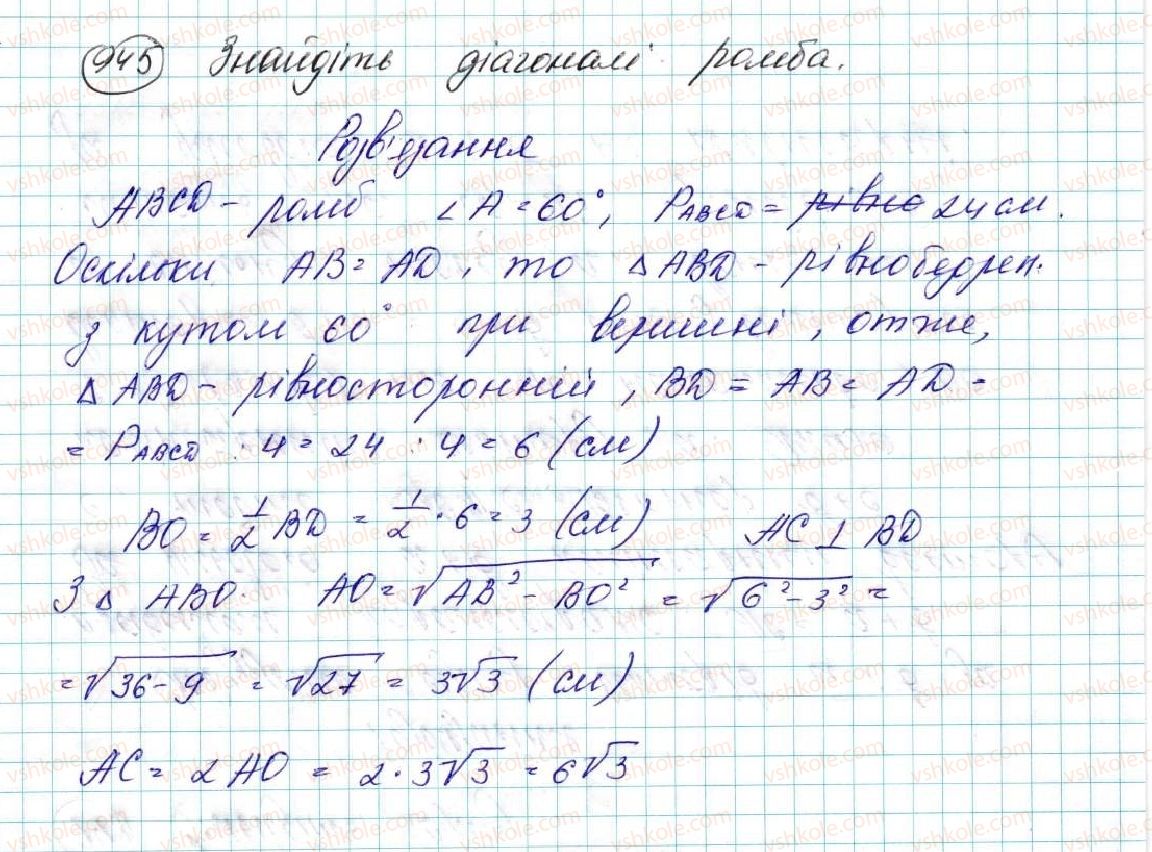 945 Знайдіть діагоналі ромба.
Розв'язання
ABCD - ромб ∠A = 60°, P ABCD = рівне 24 см.
Оскільки AB = AD, то △ABD - рівнобедрен.
з кутом 60° при вершині, отже,
△ABD - рівносторонній, BD = AB = AD =
= P ABCD : 4 = 24 : 4 = 6 (см)
BO = 1/2 BD = 1/2 · 6 = 3 (см) AC ⊥ BD
З △ ABO. AO = √(AB² - BO²) = √(6² - 3²) =
= √(36 - 9) = √27 = 3√3 (см)
AC = 2AO = 2 · 3√3 = 6√3